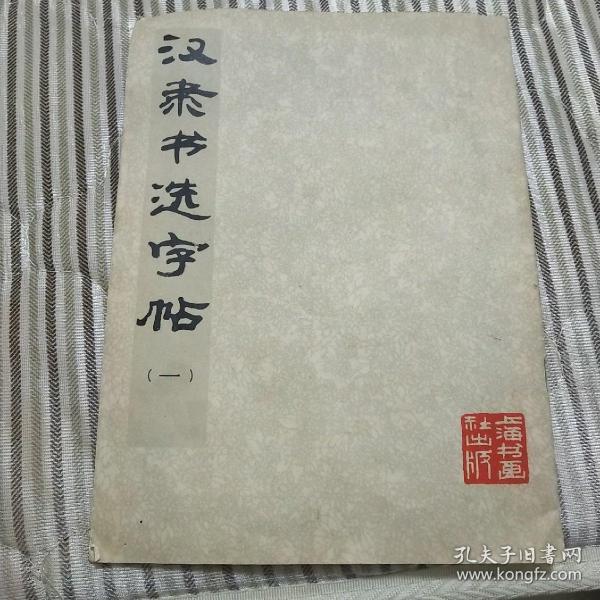 汉隶书选字帖
（一）
上海书画
社出版
孔夫子旧书网
www.kongfz.com